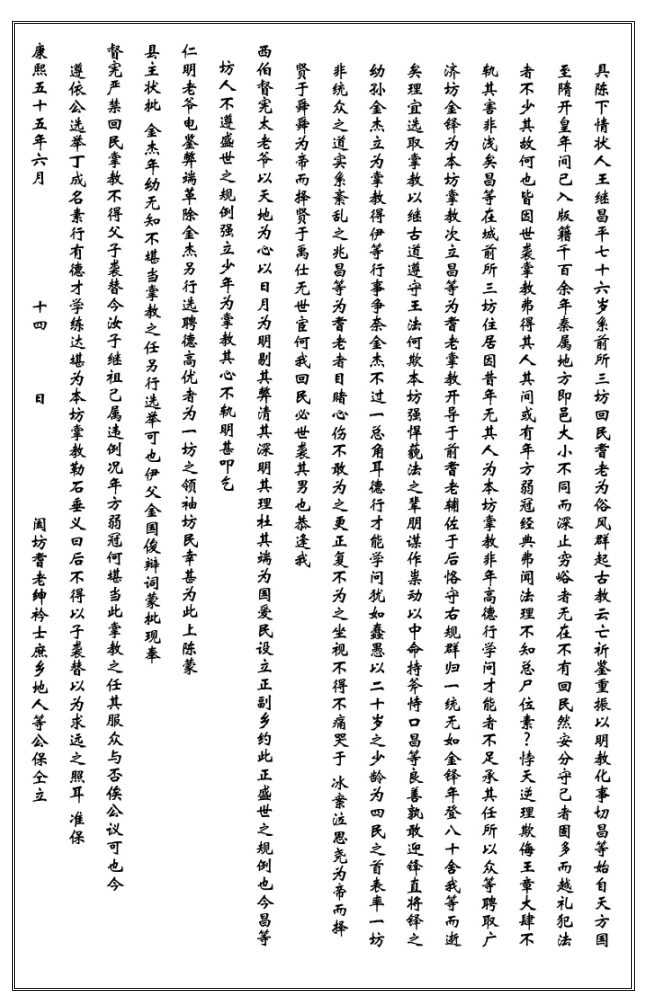 具陈下情状人王继昌平七十六岁系前所三坊回民耆老为俗风群起古教云亡祈鉴重振以明教化事切昌等始自天方国
至隋开皇年间已入版籍千百余年秦属地方即邑大小不同而深止穷峪者无在不有回民然安分守己者固多而越礼犯法
者不少其故何也皆因世袭掌教弗得其人其间或有年方弱冠经典弗闻法理不知总尸位素?悖天逆理欺侮王章大肆不
轨其害非浅矣昌等在城前所三坊住居因昔年无其人为本坊掌教非年高德行学问才能者不足承其任所以众等聘取广
济坊金铎为本坊掌教次立昌等为耆老掌教开导于前耆老辅佐于后恪守右规群归一统无如金铎年登八十舍我等而逝
矣理宜选取掌教以继古道遵守王法何欺本坊强悍藐法之辈朋谋作祟动以中命持斧恃口昌等良善孰敢迎锋直将铎之
幼孙金杰立为掌教得伊等行事争奈金杰不过一总角耳德行才能学问犹如蠢愚以二十岁之少龄为四民之首表率一坊
非统众之道实系紊乱之兆昌等为耆老者目睹心伤不敢为之更正复不为之坐视不得不痛哭于 冰案泣思尧为帝而择
贤于舜舜为帝而择贤于禹仕无世宦何我回民必世袭其男也恭逢我
西伯督宪太老爷以天地为心以日月为明剔其弊清其深明其理杜其端为国爱民设立正副乡约此正盛世之规例也今昌等
坊人不遵盛世之规例强立少年为掌教其心不轨明甚叩乞
仁明老爷电鉴弊端革除金杰另行选聘德高优者为一坊之领袖坊民幸甚为此上陈蒙
县主状批 金杰年幼无知不堪当掌教之任另行选举可也伊父金国俊辩词蒙批现奉
督宪严禁回民掌教不得父子袭替今汝子继祖已属违例况年方弱冠何堪当此掌教之任其服众与否俟公议可也今
遵依公选举丁成名素行有德才学练达堪为本坊掌教勒石垂义曰后不得以子袭替以为求远之照耳 准保
康熙五十五年六月 十四 日 阖坊耆老绅衿士庶乡地人等公保仝立